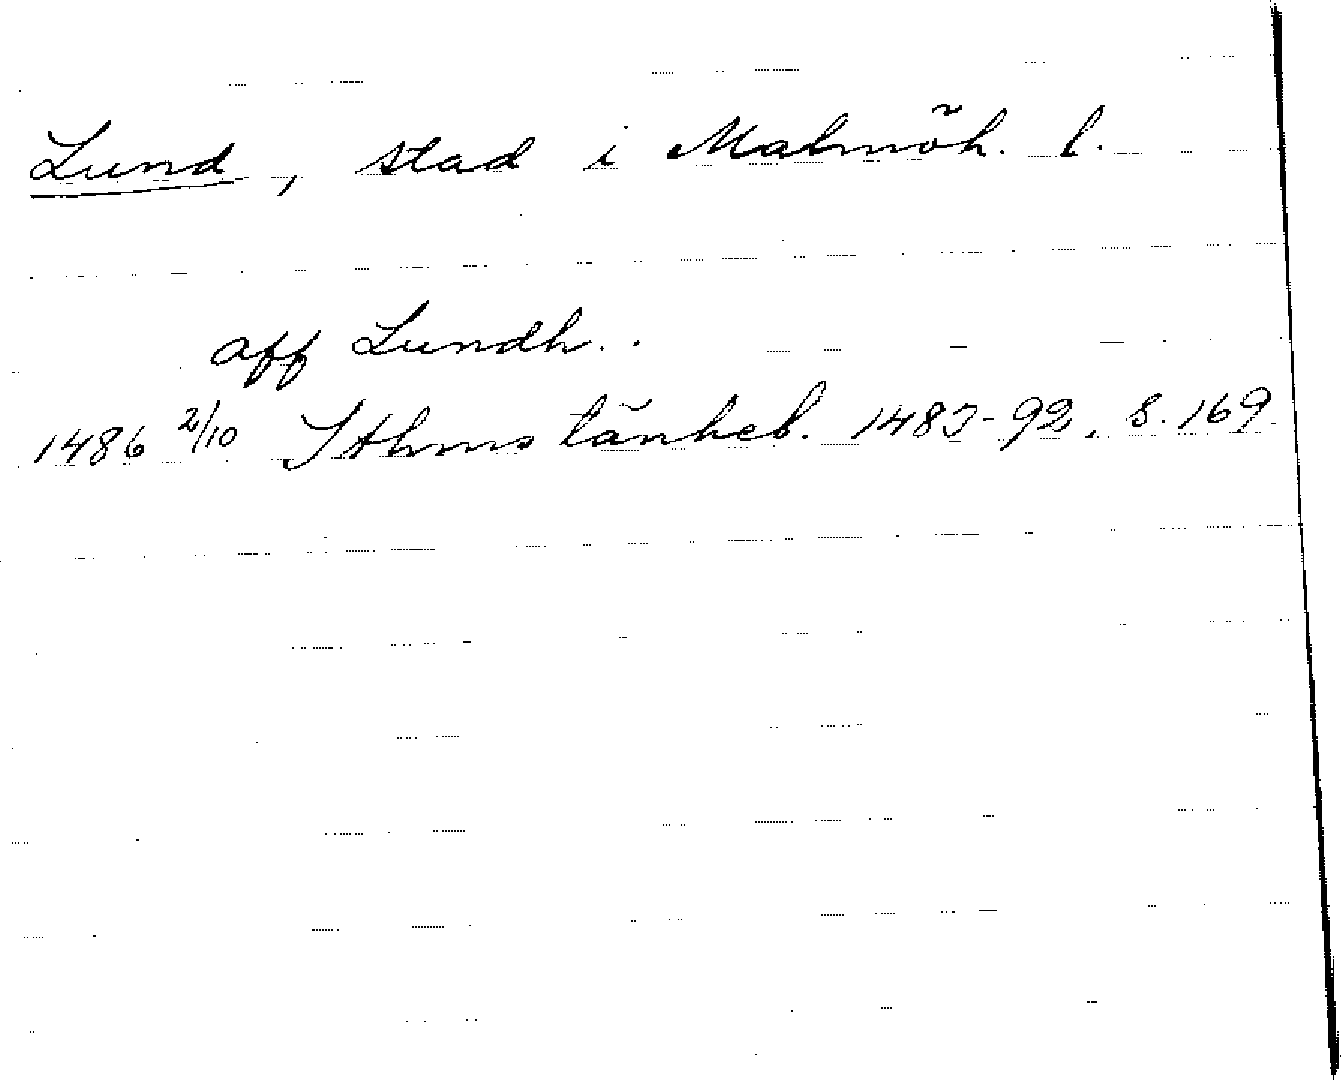 Lund, stad i Malmöh. l.
aff Lundh..
1486 2/10 Sthms tänkeb. 1483-92, s. 169